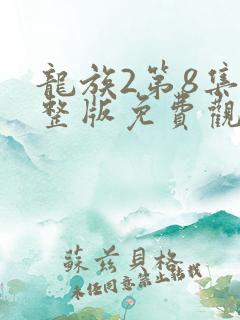 龍族2第8集
整版免費觀
蘇茲貝格
未经同意禁止转载